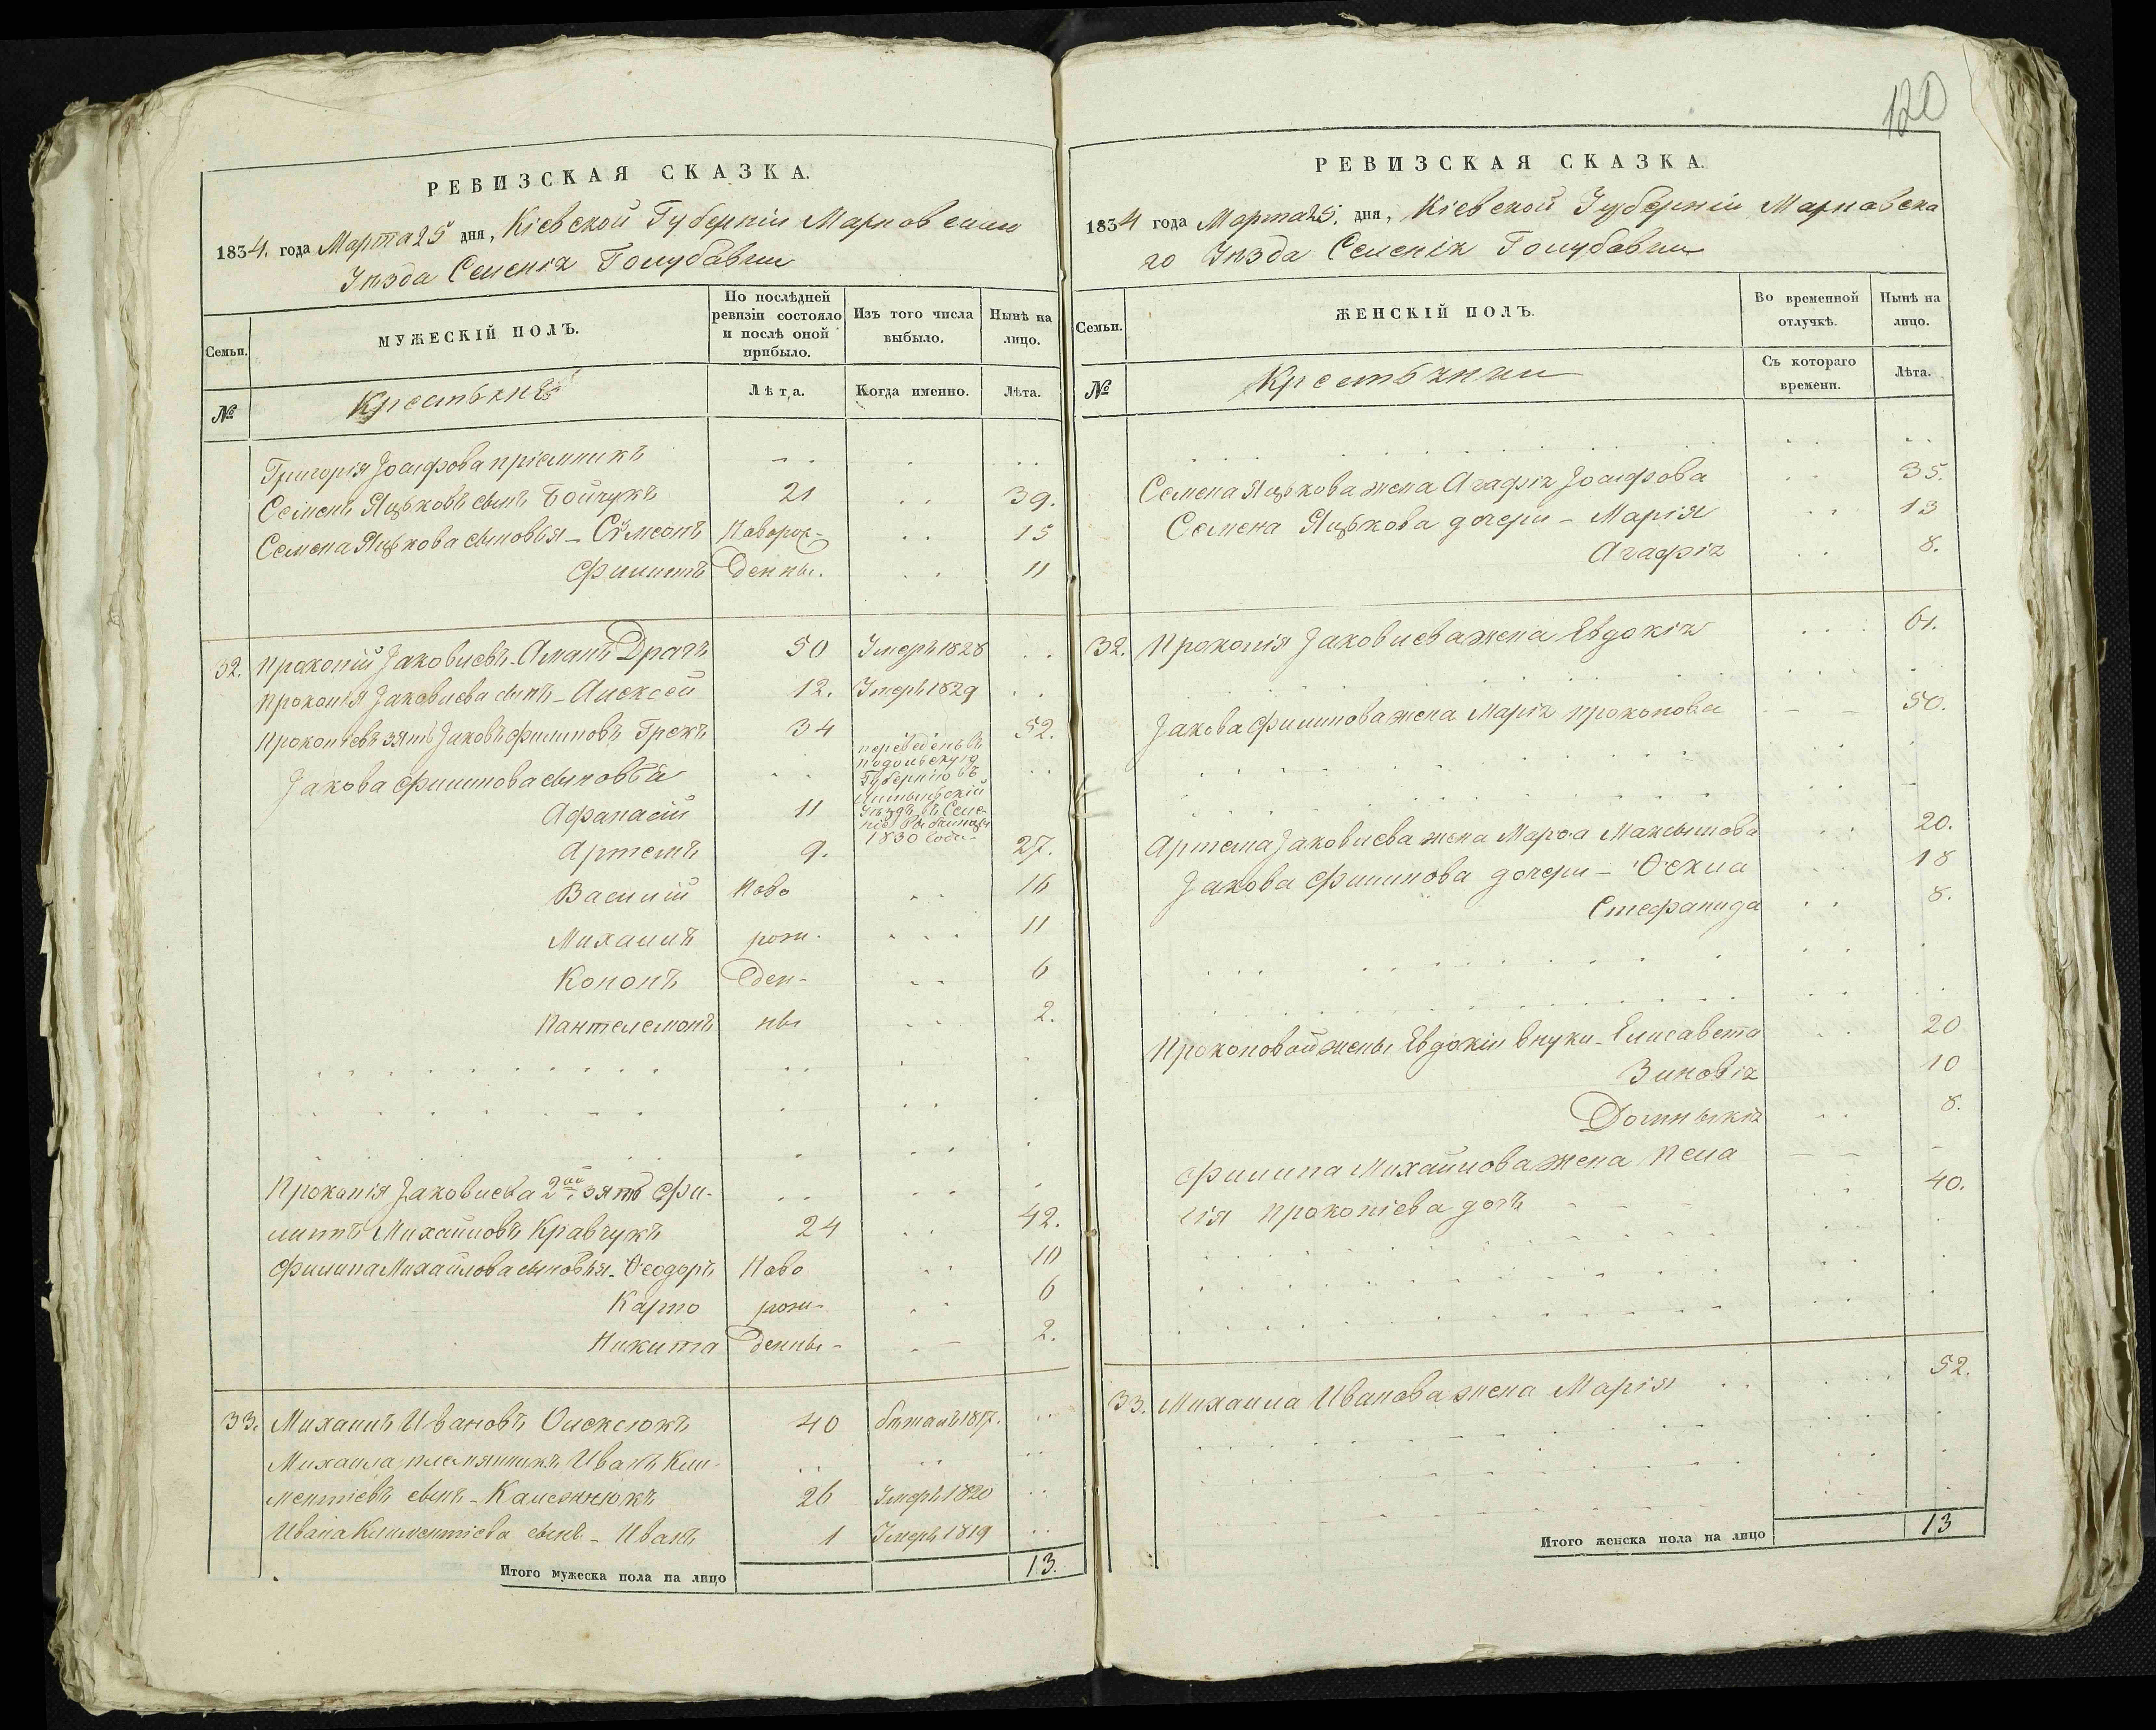 120
РЕВИЗСКАЯ СКАЗКА.
1834. года Марта 25 дня, Кіевской Губерніи
Уѣзда Селенія Голубовки
Семьи.
МУЖЕСКІЙ ПОЛЪ.
По послѣдней ревизіи состояло и послѣ оной прибыло.
Изъ того числа выбыло.
Нынѣ на лицо.
№
Крестьянѣ
Лѣта.
Когда именно.
Лѣта.
Григорія Іосифова пріемникъ
Семенъ Яцьковъ сынъ Бойчукъ 21 39.
Семена Яцькова сыновья - Сѵмеонъ Новорож- 15
Филипъ денны. 11
32. Прокопій Іаковлевъ Драчъ 50 Умеръ 1828
Прокопія Іаковлева сынъ - Алексей 12. Умеръ 1829
Прокопіевъ зять Іаковъ Филиповъ Грекъ 34 52.
Іакова Филипова сыновья
переведенъ въ
Подольскую
Губернію въ
Уѣздъ въ Селе-
1830 года-
Афанасій 11
Артемъ 9. 27.
Василій Ново 16
Михаилъ рож- 11
Кононъ ден- 6
Пантелемонъ ны 2.
Прокопія Іаковлева 2ой зять Фи-
липъ Михайловъ Кравчукъ 24 42.
Филипа Михайлова сыновья - Ѳеодоръ Ново 10
Карпо рож- 6
Никита денны- 2.
33. Михаилъ Ивановъ Олексюкъ 40 1817.
Михаила племянникъ Иванъ Кли-
ментіевъ сынъ - 26 Умеръ 1820
Ивана Климентіева сынъ - Иванъ 1 Умеръ 1819
Итого мужеска пола на лицо 13.
РЕВИЗСКАЯ СКАЗКА.
1834 года Марта 25. дня, Кіевской Губерніи
го Уѣзда Селенія Голубовки
Семьи.
ЖЕНСКІЙ ПОЛЪ.
Во временной отлучкѣ.
Нынѣ на лицо.
№
Крестьянки
Съ котораго времени.
Лѣта.
Семена Яцькова жена Агафія Іосифова 35.
Семена Яцькова дочери - Марія 13
Агафія 8.
32. Прокопія Іаковлева жена Евдокія 61.
Іакова Филипова жена Марія Прокопова 50.
Артема Іаковлева жена Марѳа Максимова 20.
Іакова Филипова дочери - Ѳекла 18
Стефанида 8.
Прокоповой жены Евдокіи внуки - Елисавета 20
Зиновія 10
Домникія 8.
Филипа Михайлова жена Пела
гія Прокопіева дочь 40.
33. Михаила Иванова жена Марія 52.
Итого женска пола на лицо 13